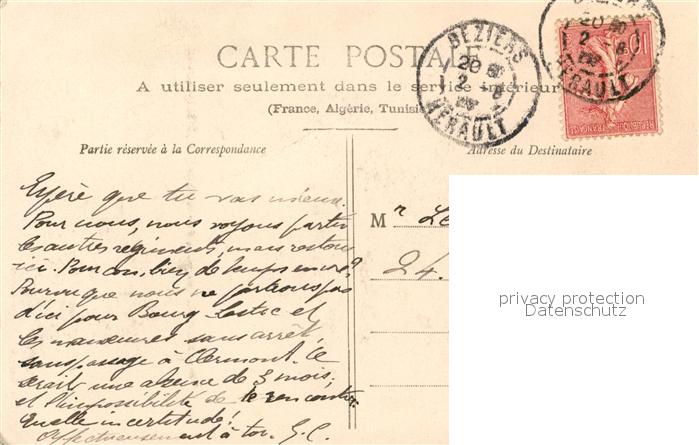 CARTE POSTALE
A utiliser seulement dans le service intérieur
(France, Algérie, Tunisie
Partie réservée à la Correspondance
Adresse du Destinataire
BEZIERS
HERAULT
BEZIERS
HERAULT
10
REPUBLIQUE FRANÇAISE
Espère que tu vas mieux.
Pour nous, nous voyons partir
les autres régiments, mais restons
ici. Pour combien de temps encore ?
Pourvu que nous ne partions pas
d'ici pour Bourg Lastic et
les manœuvres sans arrêt,
sans passage à Clermont. Ce
serait une absence de 3 mois,
et l'impossibilité de te rencontrer.
Quelle incertitude !
Affectueusement à toi. G.C.
Mr
24.
privacy protection
Datenschutz